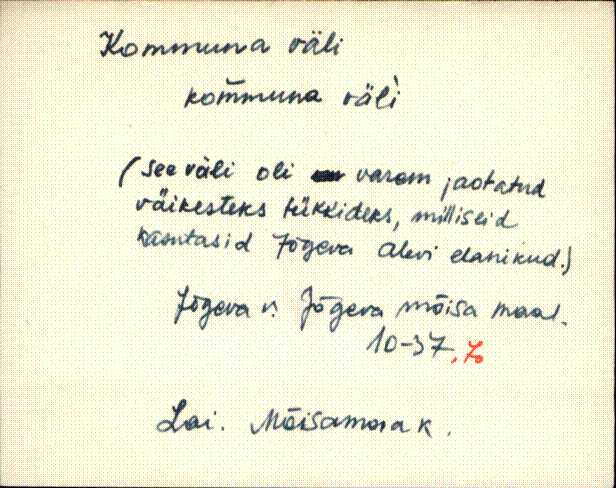 Kommuna väli
kom̄muna väl̀i
(See väli oli varem jaotatud
väikesteks tükkideks, milliseid
kasutasid Jõgeva alevi elanikud.)
Jõgeva v. Jõgeva mõisa maal.
10-37, 70
Lai. Mõisamaa k.